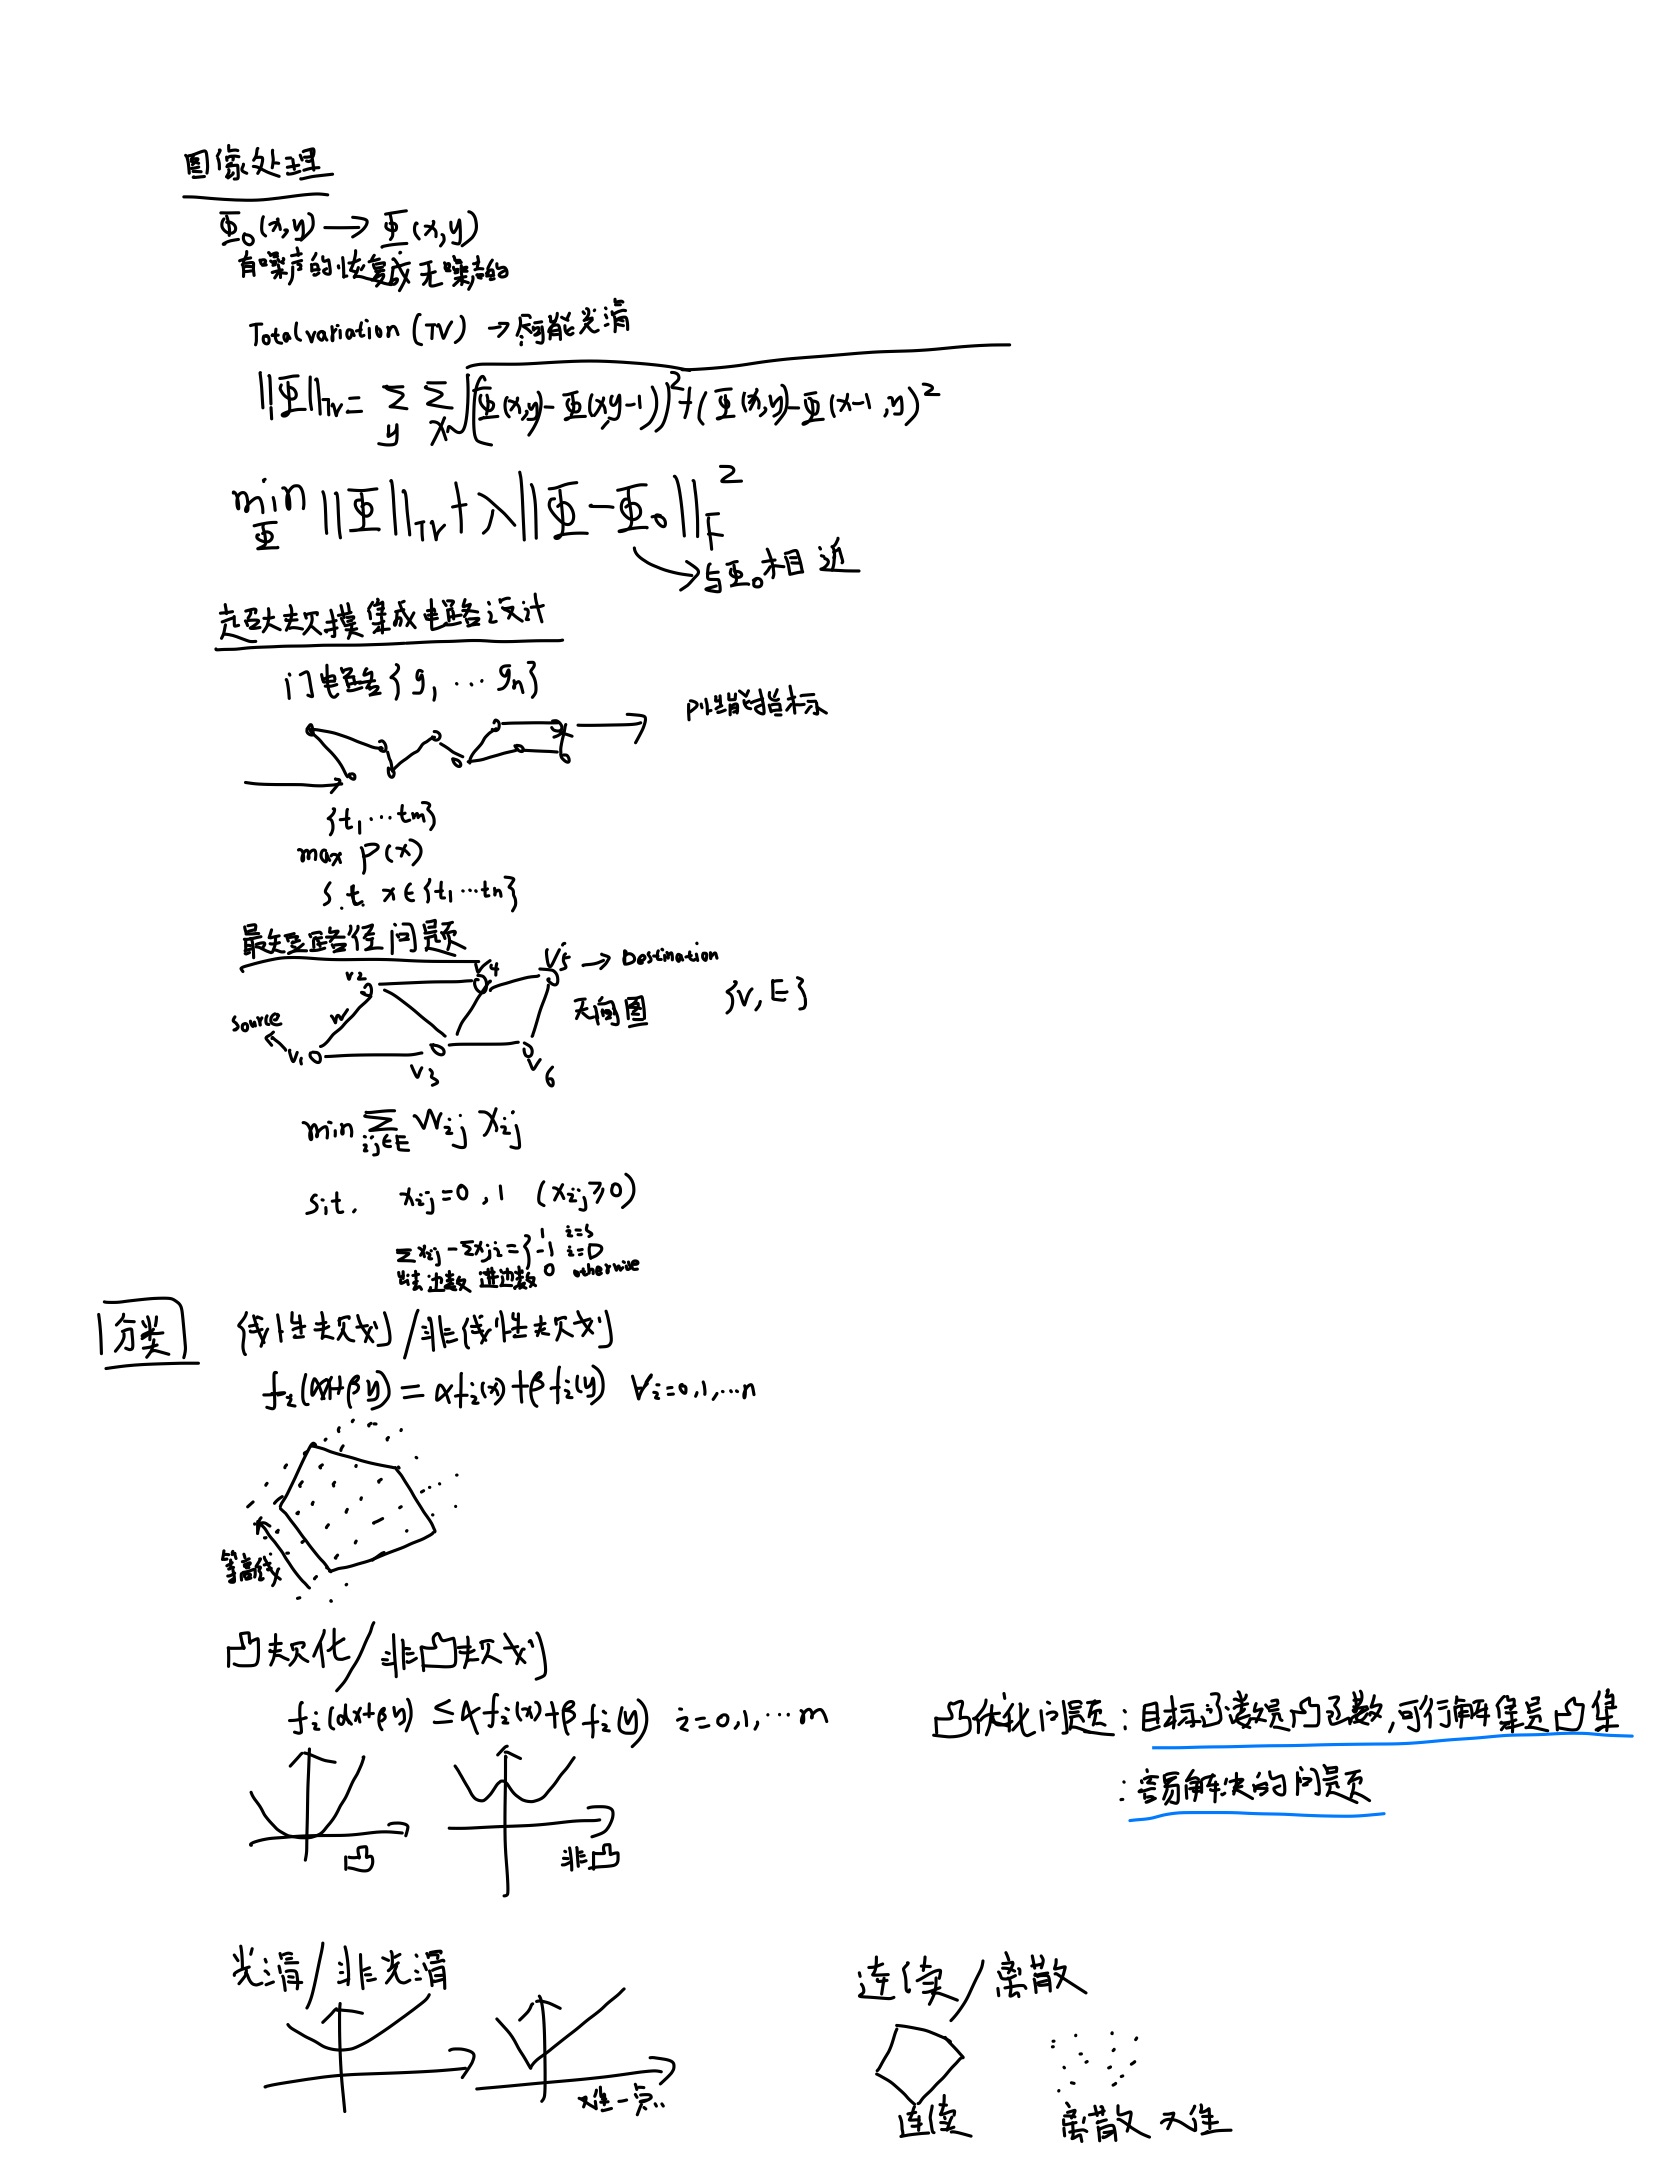 图像处理
Φ₀(x,y) → Φ(x,y)
有噪声的恢复成无噪声的
Total variation (TV) → 尽可能光滑
||Φ||TV = Σy Σx √((Φ(x,y)-Φ(x,y-1))² + (Φ(x,y)-Φ(x-1,y)²
min Φ ||Φ||TV + λ||Φ-Φ₀||F²
→ 与Φ₀相近
超大规模集成电路设计
门电路{g₁ ... gn}
P性能指标
{t₁ ... tm}
max P(x)
s.t. x∈{t₁ ... tn}
最短路径问题
V2 V4 V5 → Destination
无向图 {V, E}
Source W
V1 V3 V6
min Σij∈E Wij Xij
s.t. xij=0,1 (xij≥0)
Σxij - Σxji = { 1 i=s
-1 i=D
0 otherwise
出边数 进边数
分类 线性规划/非线性规划
fi(αx+βy) = αfi(x)+βfi(y) ∀i=0,1,...n
等高线
凸规化/非凸规划
fi(αx+βy) ≤ αfi(x)+βfi(y) i=0,1,...m
凸优化问题:目标函数是凸函数,可行解集是凸集
:容易解决的问题
凸 非凸
光滑/非光滑
又难一点..
连续/离散
连续 离散 又难